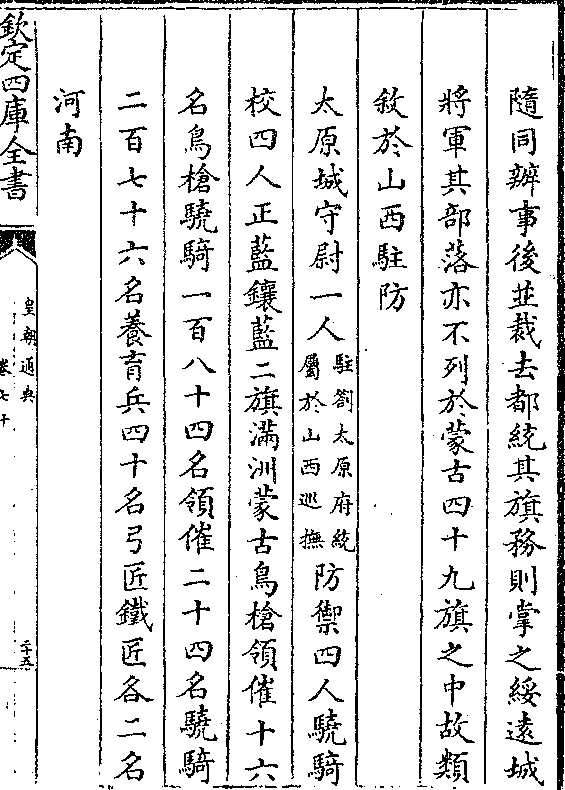 隨同辦事後並裁去都統其旗務則掌之綏遠城
將軍其部落亦不列於蒙古四十九旗之中故類
敘於山西駐防
太原城守尉一人駐劄太原府統屬於山西巡撫防禦四人驍騎
校四人正藍鑲藍二旗滿洲蒙古鳥槍領催十六
名鳥槍驍騎一百八十四名領催二十四名驍騎
二百七十六名養育兵四十名弓匠鐵匠各二名
河南
欽定四庫全書
皇朝通典
卷七十
二十五